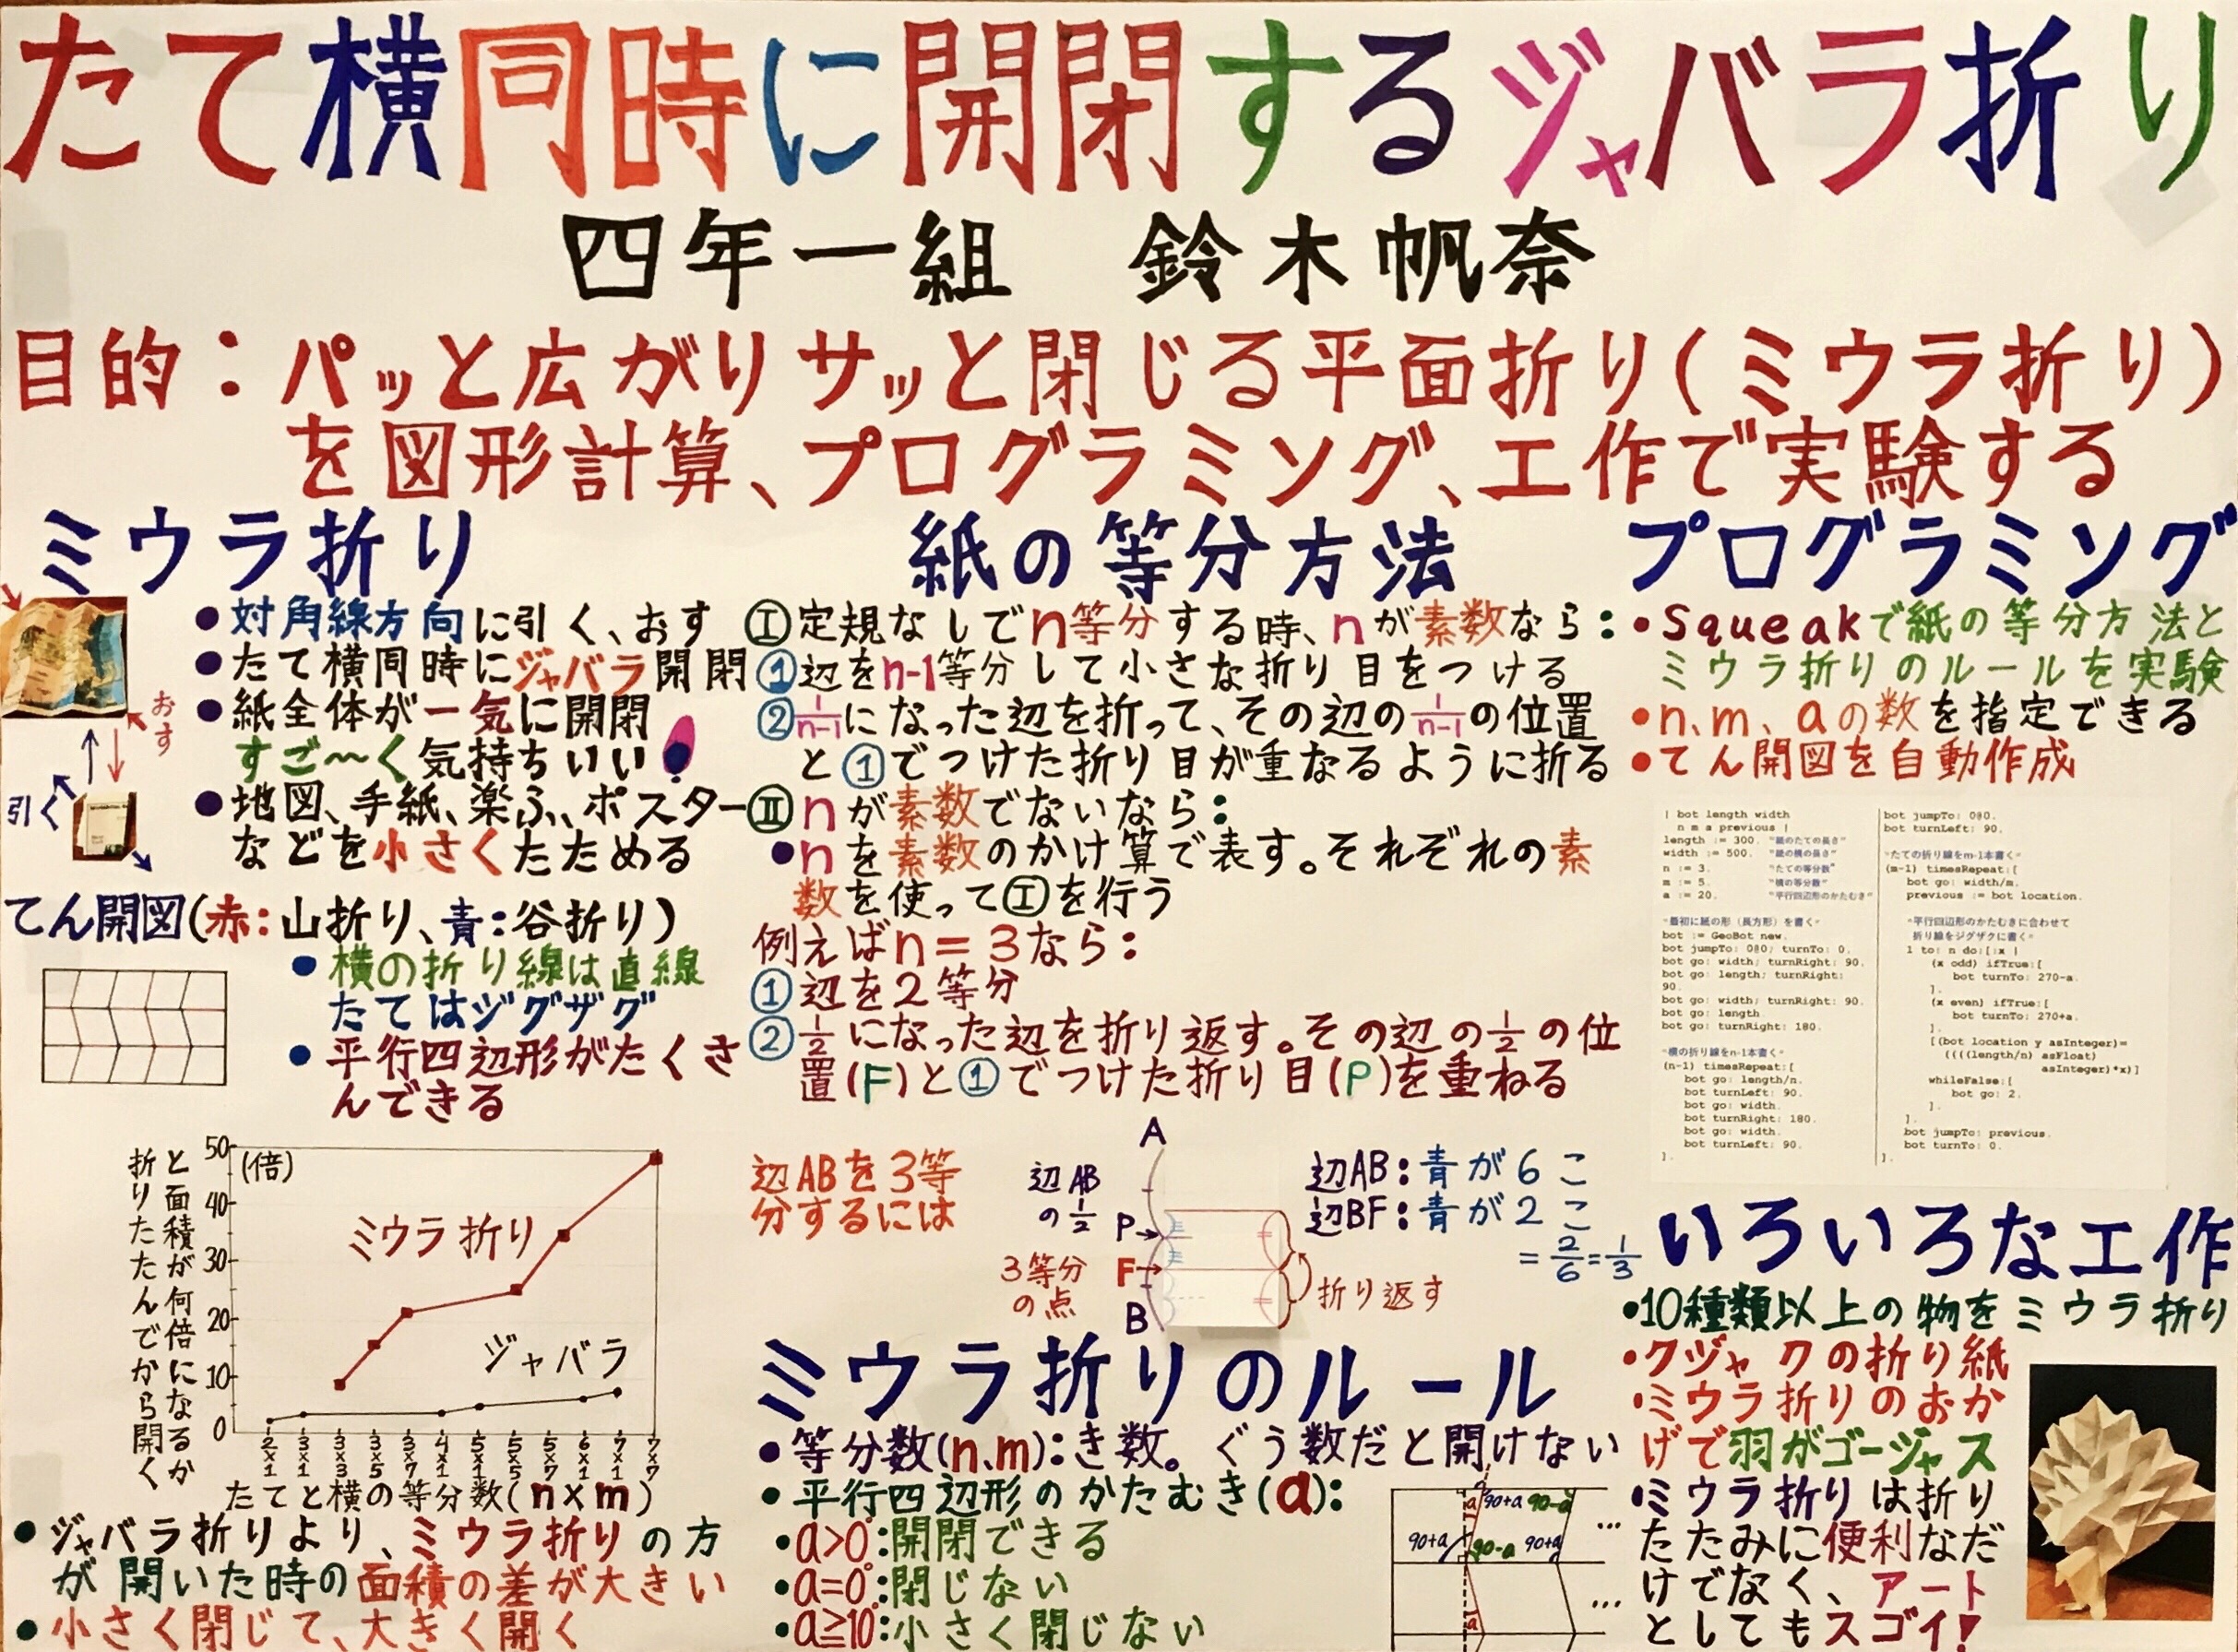 たて横同時に開閉するジャバラ折り
四年一組 鈴木帆奈
目的：パッと広がりサッと閉じる平面折り(ミウラ折り)
を図形計算、プログラミング、工作で実験する
ミウラ折り
●対角線方向に引く、おす
●たて横同時にジャバラ開閉
●紙全体が一気に開閉
すご〜く気持ちいい!
●地図、手紙、楽ふ、ポスター
などを小さくたためる
おす
引く
てん開図(赤:山折り、青:谷折り)
●横の折り線は直線
たてはジグザグ
●平行四辺形がたくさ
んできる
折りたたんでから開く
と面積が何倍になるか
(倍)
50
40
30
20
10
0
ミウラ折り
ジャバラ
2×1 3×1 3×3 3×5 3×7 4×1 5×1 5×5 5×7 6×1 7×1 7×7
たてと横の等分数(n×m)
●ジャバラ折りより、ミウラ折りの方
が開いた時の面積の差が大きい
●小さく閉じて、大きく開く
紙の等分方法
Ⅰ定規なしでn等分する時、nが素数なら:
①辺をn-1等分して小さな折り目をつける
②1/n-1になった辺を折って、その辺の1/n-1の位置
と①でつけた折り目が重なるように折る
Ⅱnが素数でないなら:
●nを素数のかけ算で表す。それぞれの素
数を使ってⅠを行う
例えばn=3なら:
①辺を2等分
②1/2になった辺を折り返す。その辺の1/2の位
置(F)と①でつけた折り目(P)を重ねる
辺ABを3等
分するには
A
辺AB
の1/2
P
3等分
の点
F
B
折り返す
辺AB:青が6こ
辺BF:青が2こ
=2/6=1/3
ミウラ折りのルール
●等分数(n,m):き数。ぐう数だと開けない
●平行四辺形のかたむき(a):
●a>0°:開閉できる
●a=0°:閉じない
●a≥10°:小さく閉じない
a
90+a
90-a
90+a
90-a
90+a
…
a
…
プログラミング
●Squeakで紙の等分方法と
ミウラ折りのルールを実験
●n、m、aの数を指定できる
●てん開図を自動作成
| bot length width
n m a previous |
length := 300. "紙のたての長さ"
width := 500. "紙の横の長さ"
n := 3. "たての等分数"
m := 5. "横の等分数"
a := 20. "平行四辺形のかたむき"
"最初に紙の形（長方形）を書く"
bot := GeoBot new.
bot jumpTo: 0@0; turnTo: 0.
bot go: width; turnRight: 90.
bot go: length; turnRight:
90.
bot go: width; turnRight: 90.
bot go: length.
bot go: turnRight: 180.
"横の折り線をn-1本書く"
(n-1) timesRepeat:[
bot go: length/n.
bot turnLeft: 90.
bot go: width.
bot turnRight: 180.
bot go: width.
bot turnLeft: 90.
].
bot jumpTo: 0@0.
bot turnLeft: 90.
"たての折り線をm-1本書く"
(m-1) timesRepeat:[
bot go: width/m.
previous := bot location.
"平行四辺形のかたむきに合わせて
折り線をジグザグに書く"
1 to: n do:[:x |
(x odd) ifTrue:[
bot turnTo: 270-a.
].
(x even) ifTrue:[
bot turnTo: 270+a.
].
[(bot location y asInteger)=
((((length/n) asFloat)
asInteger)*x)]
whileFalse:[
bot go: 2.
].
].
bot jumpTo: previous.
bot turnTo: 0.
].
いろいろな工作
●10種類以上の物をミウラ折り
●クジャクの折り紙
●ミウラ折りのおか
げで羽がゴージャス
●ミウラ折りは折り
たたみに便利なだ
けでなく、アート
としてもスゴイ!